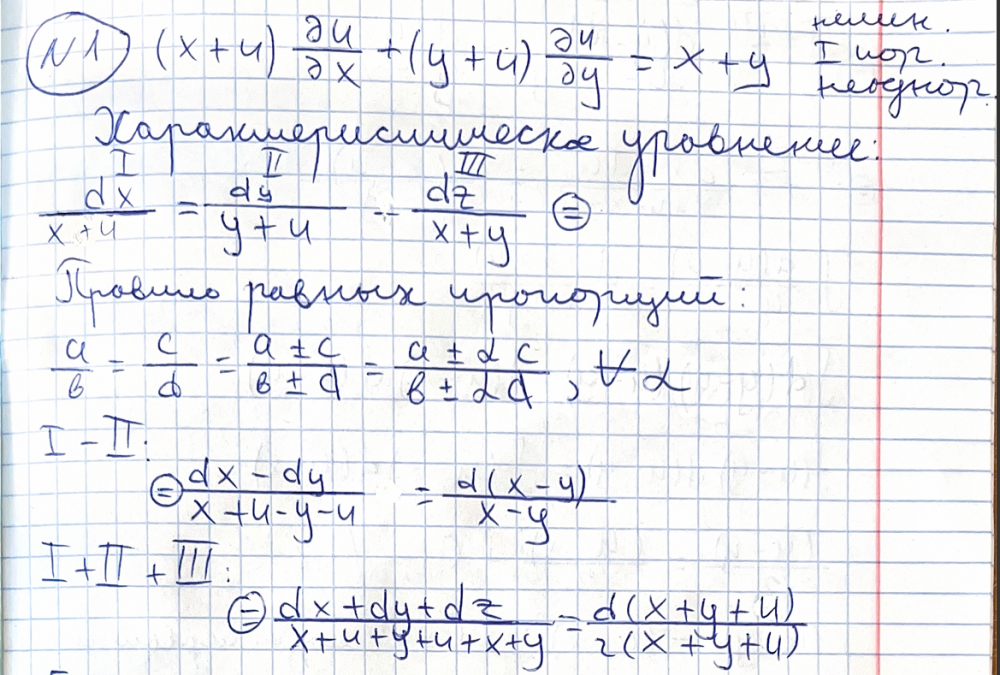 N1 (x+u) ∂u/∂x + (y+u) ∂u/∂y = x+y
нелин.
I пор.
неоднор.
Характеристическое уравнение:
I II III
dx/(x+u) = dy/(y+u) = dz/(x+y) ⊜
Правило равных пропорций:
a/b = c/d = (a ± c)/(b ± d) = (a ± αc)/(b ± αd), ∀α
I - II:
⊜ (dx - dy)/(x+u-y-u) = d(x-y)/(x-y)
I + II + III:
⊜ (dx+dy+dz)/(x+u+y+u+x+y) = d(x+y+u)/(2(x+y+u))